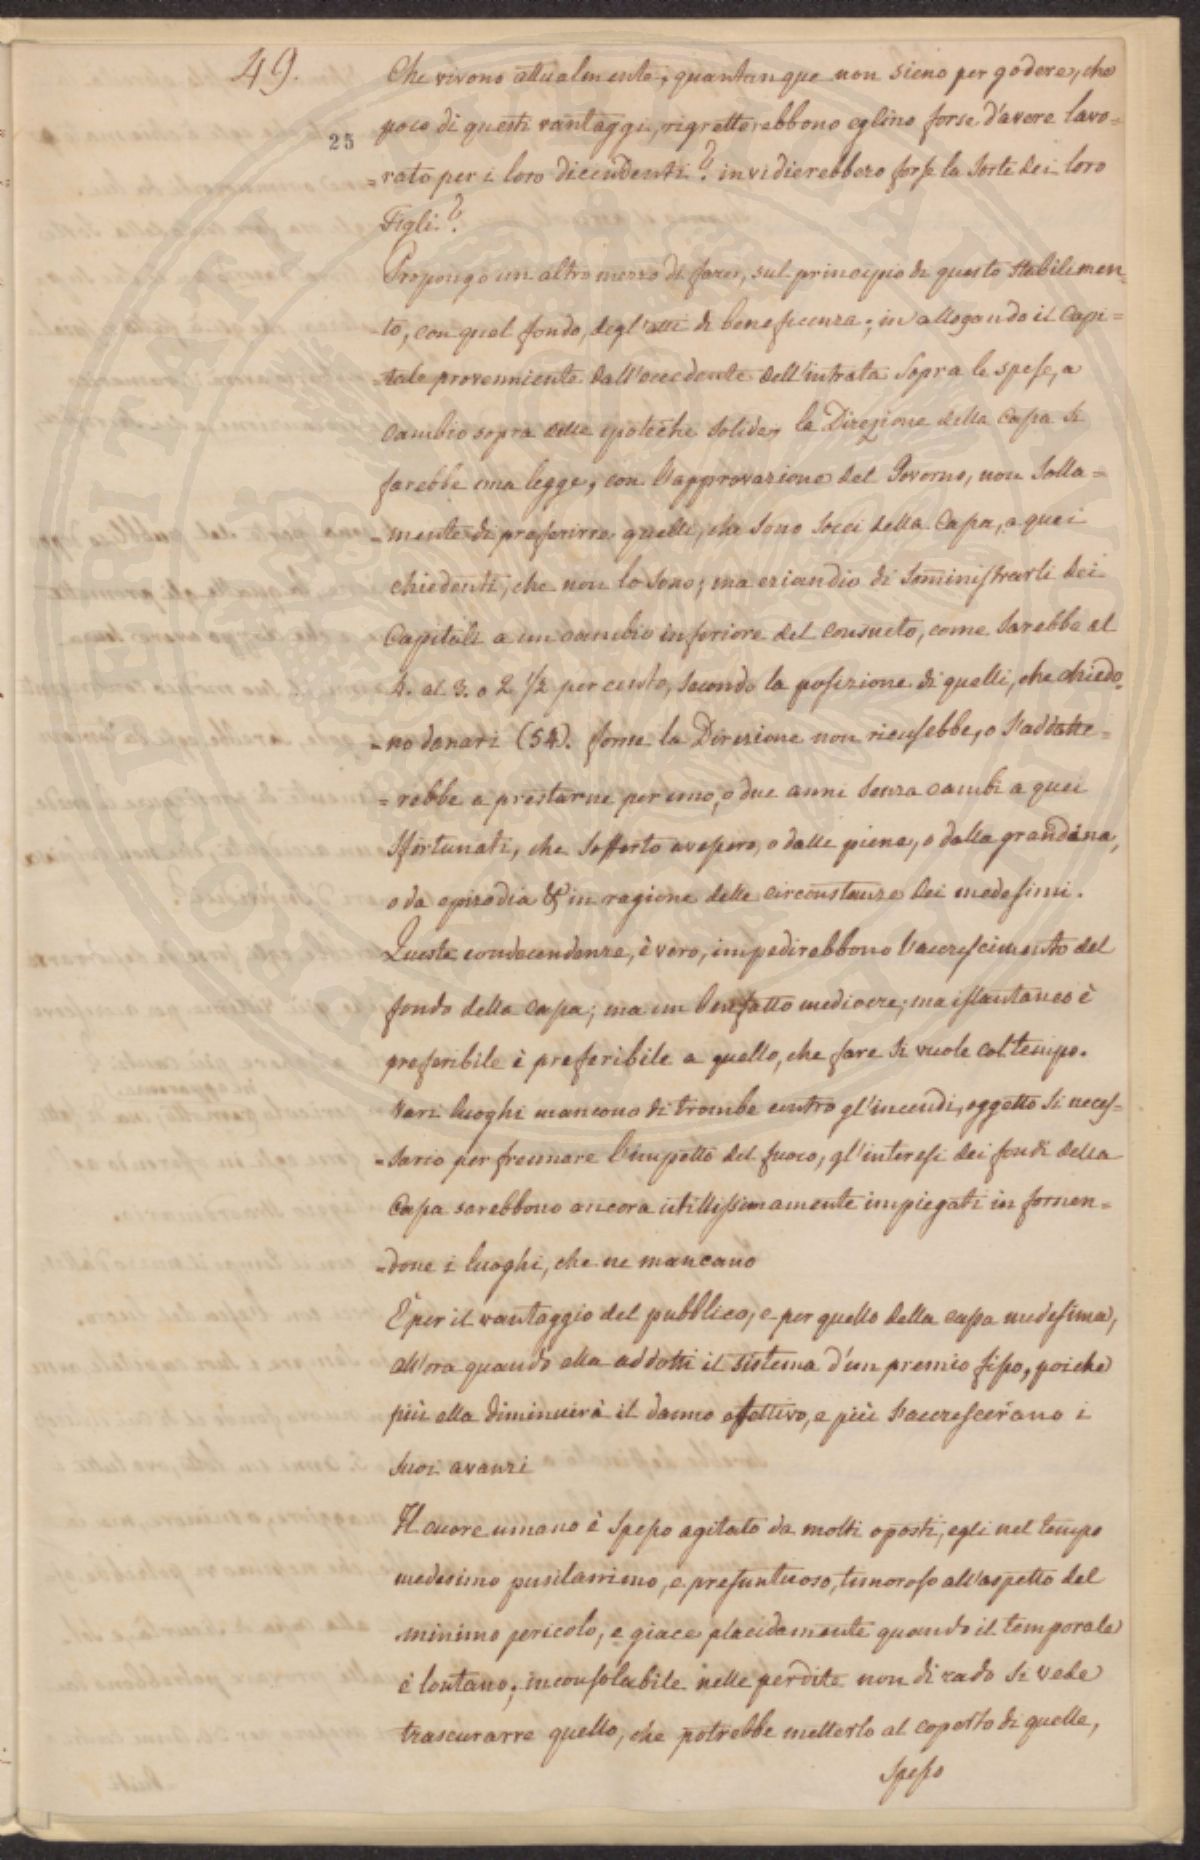 49.
25
Che vivono attualmente, quantunque non sieno per godere, che
poco di questi vantaggi, rigretterebbono eglino forse d'avere lavo=
=rato per i loro dicendenti? invidierebbero forse la sorte dei loro
Figli?
Propongo un altro mezzo di farer, sul principio di questo stabilimen=
=to, con quel fondo, degl'atti di beneficenza; in allogando il Capi=
=tale provenniente dall'eccedente dell'intrata sopra le spese, a
Cambio sopra delle ipoteche solide, la Direzione della Cassa si
farebbe una legge, con l'approvazione del Governo, non solla=
=mente di preferirre quelli, che sono socci della Cassa, a quei
chiedenti, che non lo sono; ma eziandio di sominisstrarli dei
Capitali a un cambio inferiore del consueto, come sarebbe al
4. al 3. o 2 1/2 per cento, secondo la posizione di quelli, che chiedo=
=no danari (54). forse la Direzione non ricusebbe, o s'addatte=
=rebbe a prestarne per uno, o due anni senza cambi a quei
sfortunati, che sofferto avessero, o dalle piene, o dalla grandina,
o da epizodia & in ragione delle circonstanze dei medesimi.
Queste condecendenze, è vero, impedirebbono l'accrescimento del
fondo della cassa; ma un benfatto mediocre; ma istantaneo è
preferibile è preferibile a quello, che fare si vuole col tempo.
Vari luoghi mancono di trombe contro gl'incendi, oggetto si neces=
=sario per frennare l'impetto del fuoco, gl'interesi dei fondi della
Cassa sarebbono ancora utillissimamente impiegati in fornen=
=done i luoghi, che ne mancano
È per il vantaggio del pubblico, e per quello della cassa medesima,
all'ora quando ella addotti il sistema d'un premio fisso, poiche
più ella diminuirà il danno effettivo, e più s'accresceràno i
suoi avanzi
Il cuore umano è spesso agitato da molti oposti, egli nel tempo
medesimo pusilanimo, e presuntuoso, timoroso all'aspetto del
minimo pericolo, e giace placidamente quando il temporale
è lontano; inconsolabile nelle perdite non di rado si vede
trascurarre quello, che potrebbe metterlo al coperto di quelle,
spesso